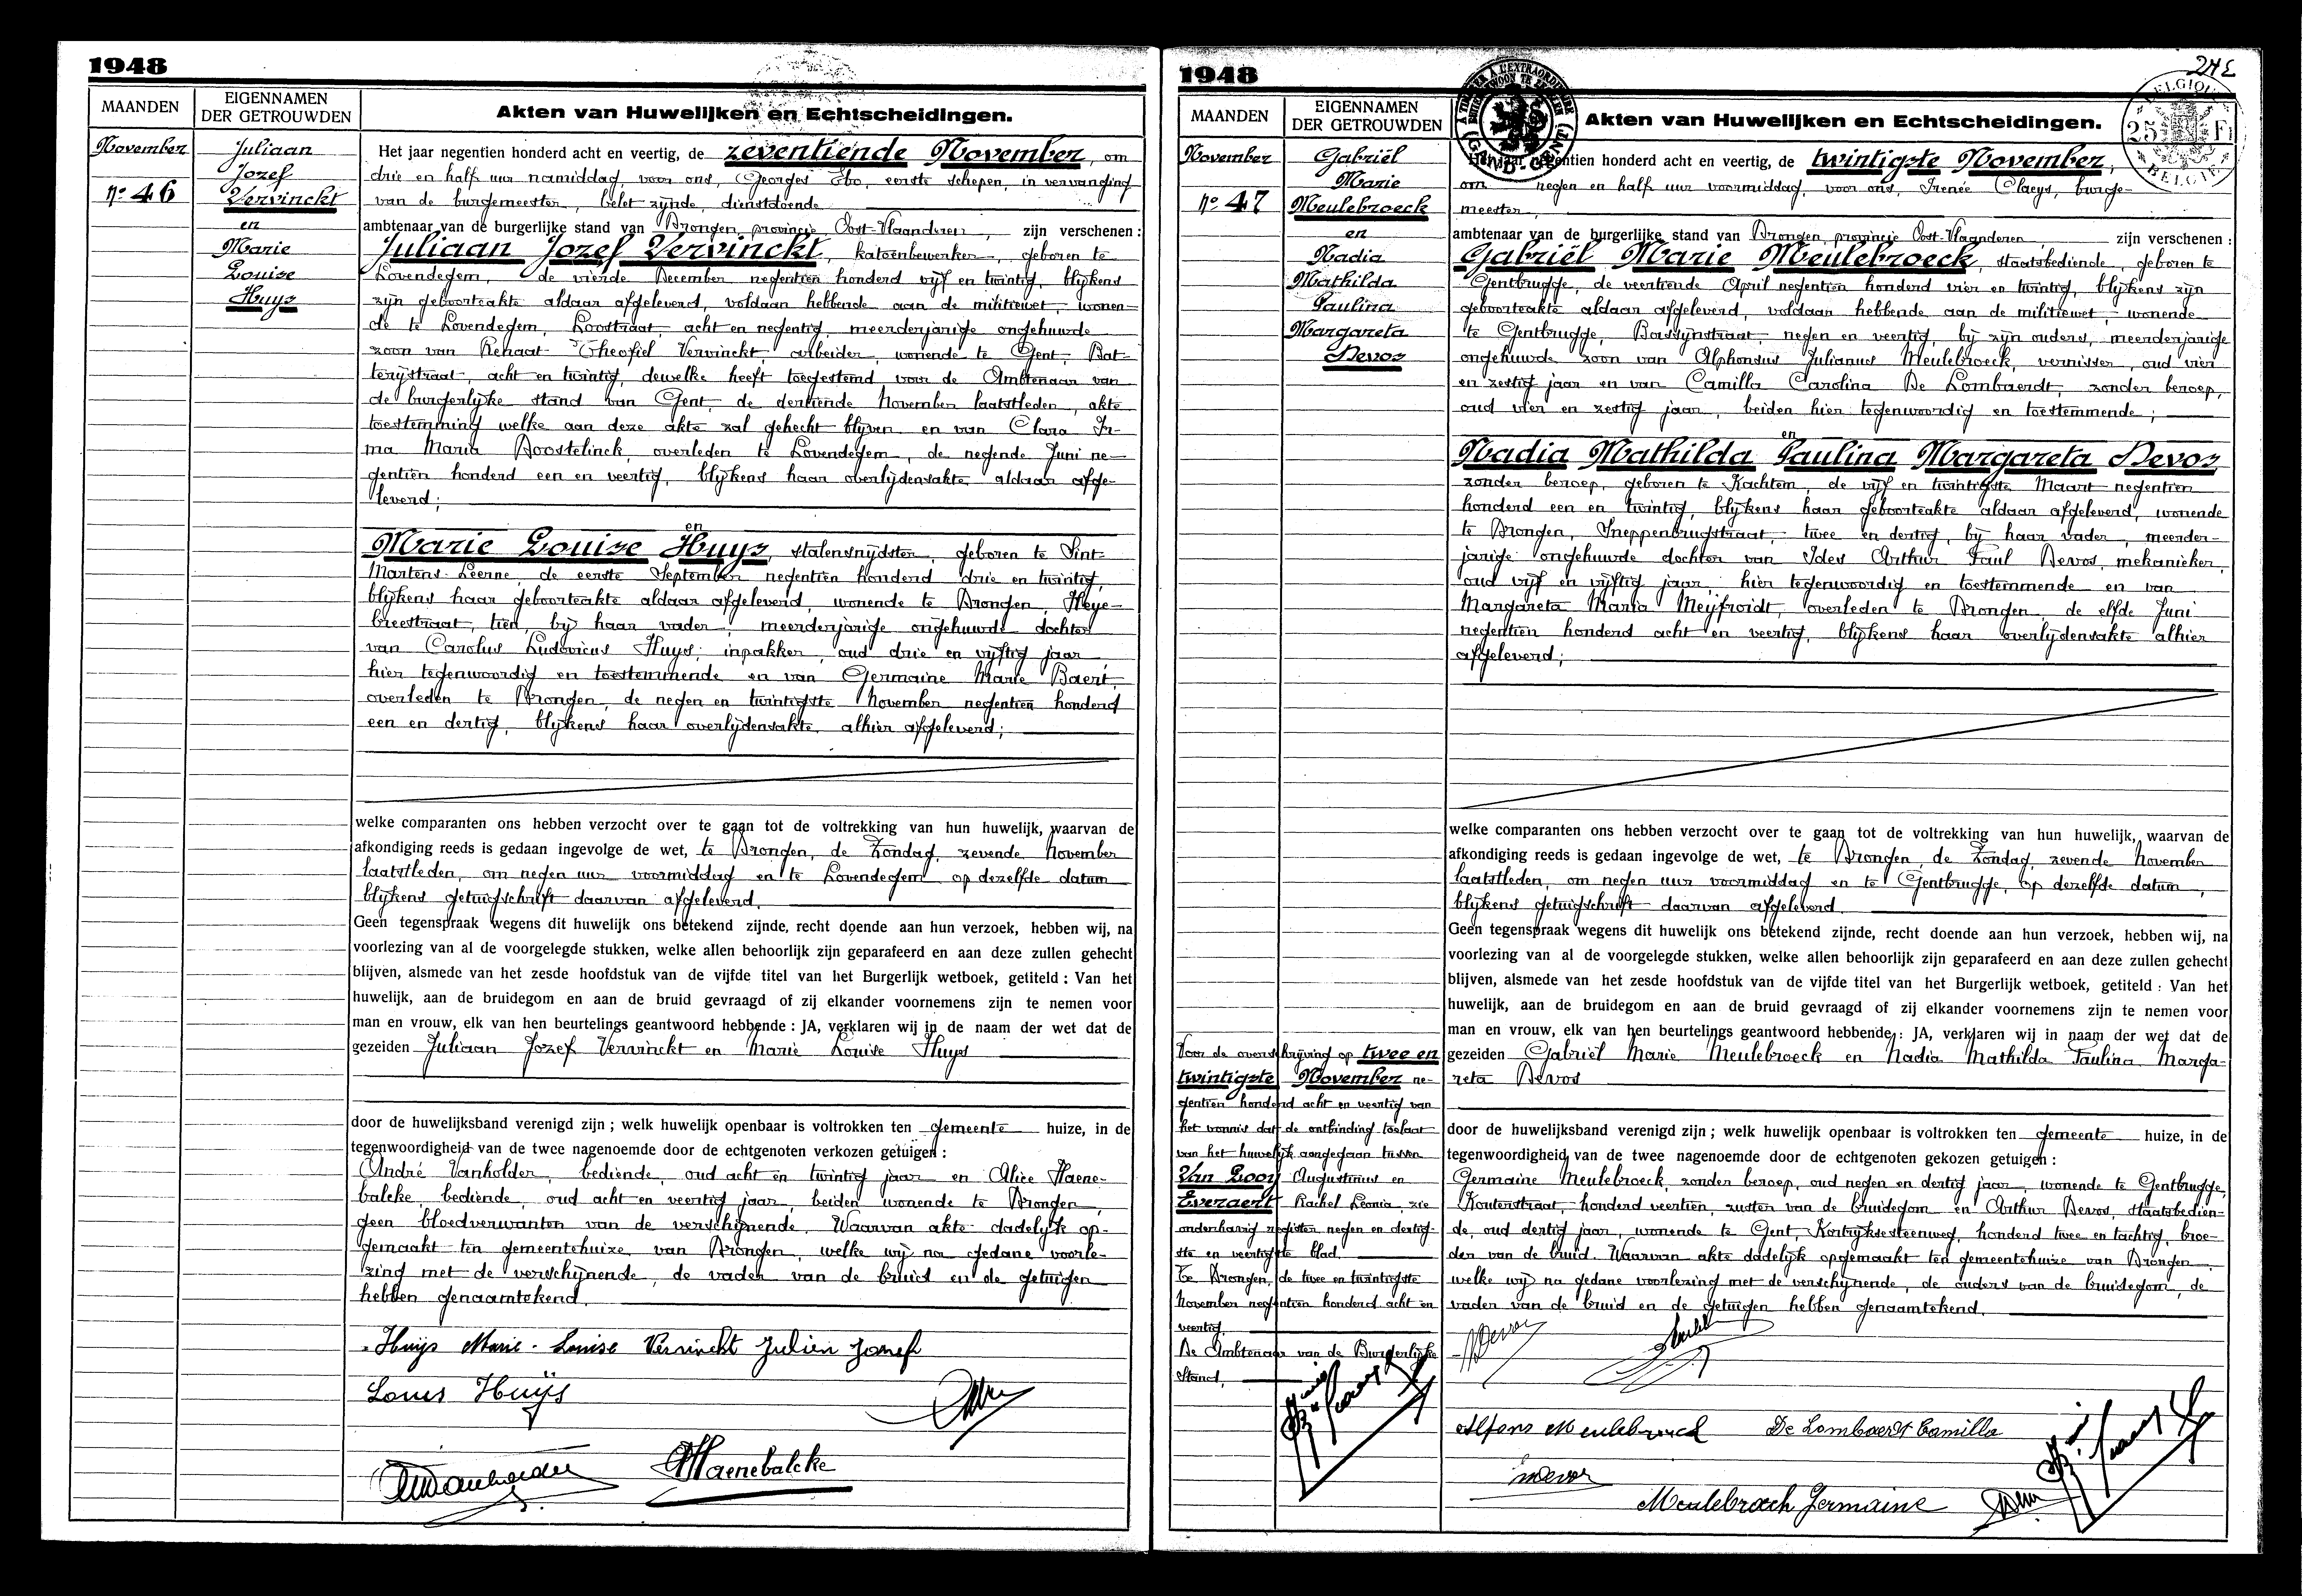 1948
MAANDEN
EIGENNAMEN
DER GETROUWDEN
Akten van Huwelijken en Echtscheidingen.
November
nº 46
Juliaan
Jozef
Vervinckt
en
Marie
Louise
Huys
Het jaar negentien honderd acht en veertig, de zeventiende November, om
drie en half uur namiddag, voor ons, Georges Ebo, eerste schepen, in vervanging
van de burgemeester, belet zijnde, dienstdoende
ambtenaar van de burgerlijke stand van Drongen, provincie Oost-Vlaanderen, zijn verschenen :
Juliaan Jozef Vervinckt, katoenbewerker, geboren te
Lovendegem, de vierde December negentien honderd vijf en twintig, blijkens
zijn geboorteakte aldaar afgeleverd, voldaan hebbende aan de militiewet, wonen-
de te Lovendegem, Loostraat acht en negentig, meerderjarige ongehuwde
zoon van Renaat Theofiel Vervinckt, arbeider, wonende te Gent, Bat-
terijstraat, acht en twintig, dewelke heeft toegestemd voor de Ambtenaar van
de burgerlijke stand van Gent, de dertiende November laatstleden, akte
toestemming welke aan deze akte zal gehecht blijven en van Clara Ir-
ma Maria Boostelinck, overleden te Lovendegem, de negende Juni ne-
gentien honderd een en veertig, blijkens haar overlijdensakte aldaar afge-
leverd;
en
Marie Louise Huys, stalensnijdster, geboren te Sint-
Martens-Leerne, de eerste September negentien honderd drie en twintig,
blijkens haar geboorteakte aldaar afgeleverd, wonende te Drongen, Heye-
breestraat, tien, bij haar vader, meerderjarige ongehuwde dochter
van Carolus Ludovicus Huys, inpakker, oud drie en vijftig jaar,
hier tegenwoordig en toestemmende en van Germaine Marie Baert,
overleden te Drongen, de negen en twintigste November negentien honderd
een en dertig, blijkens haar overlijdensakte alhier afgeleverd;
welke comparanten ons hebben verzocht over te gaan tot de voltrekking van hun huwelijk, waarvan de
afkondiging reeds is gedaan ingevolge de wet, te Drongen, de Zondag, zevende November
laatstleden, om negen uur voormiddag en te Lovendegem op dezelfde datum
blijkens getuigschrift daarvan afgeleverd.
Geen tegenspraak wegens dit huwelijk ons betekend zijnde, recht doende aan hun verzoek, hebben wij, na
voorlezing van al de voorgelegde stukken, welke allen behoorlijk zijn geparafeerd en aan deze zullen gehecht
blijven, alsmede van het zesde hoofdstuk van de vijfde titel van het Burgerlijk wetboek, getiteld : Van het
huwelijk, aan de bruidegom en aan de bruid gevraagd of zij elkander voornemens zijn te nemen voor
man en vrouw, elk van hen beurtelings geantwoord hebbende : JA, verklaren wij in de naam der wet dat de
gezeiden Juliaan Jozef Vervinckt en Marie Louise Huys
door de huwelijksband verenigd zijn ; welk huwelijk openbaar is voltrokken ten gemeente huize, in de
tegenwoordigheid van de twee nagenoemde door de echtgenoten verkozen getuigen :
André Vanholder, bediende, oud acht en twintig jaar en Alice Haene-
balcke, bediende, oud acht en veertig jaar, beiden wonende te Drongen,
geen bloedverwanten van de verschijnende. Waarvan akte dadelijk op-
gemaakt ten gemeentehuize van Drongen, welke wij na gedane voorle-
zing met de verschijnende, de vader van de bruid en de getuigen
hebben genaamtekend.
Huijs Marie-Louise Vervinckt Julien Jozef
Louis Huijs
AHaenebalcke
1948
MAANDEN
EIGENNAMEN
DER GETROUWDEN
Akten van Huwelijken en Echtscheidingen.
BELGIQUE
25 Fr
BELGIE
November
nº 47
Gabriël
Marie
Meulebroeck
en
Nadia
Mathilda
Paulina
Margareta
Devos
Het jaar negentien honderd acht en veertig, de twintigste November,
om negen en half uur voormiddag, voor ons, Irenée Claeys, burge-
meester,
ambtenaar van de burgerlijke stand van Drongen, provincie Oost-Vlaanderen, zijn verschenen :
Gabriël Marie Meulebroeck, staatsbediende, geboren te
Gentbrugge, de veertiende April negentien honderd vier en twintig, blijkens zijn
geboorteakte aldaar afgeleverd, voldaan hebbende aan de militiewet, wonende
te Gentbrugge, Bassijnstraat, negen en veertig, bij zijn ouders, meerderjarige
ongehuwde zoon van Alphonsus Julianus Meulebroeck, vernisser, oud vier
en zestig jaar en van Camilla Carolina De Lombaerdt, zonder beroep,
oud vier en zestig jaar, beiden hier tegenwoordig en toestemmende;
en
Nadia Mathilda Paulina Margareta Devos
zonder beroep, geboren te Kachtem, de vijf en twintigste Maart negentien
honderd een en twintig, blijkens haar geboorteakte aldaar afgeleverd, wonende
te Drongen, Sneppenbrugstraat, twee en dertig, bij haar vader, meerder-
jarige ongehuwde dochter van Ides Arthur Paul Devos, mekanieker,
oud vijf en vijftig jaar, hier tegenwoordig en toestemmende en van
Margareta Maria Meijfroidt, overleden te Drongen, de elfde Juni
negentien honderd acht en veertig, blijkens haar overlijdensakte alhier
afgeleverd;
welke comparanten ons hebben verzocht over te gaan tot de voltrekking van hun huwelijk, waarvan de
afkondiging reeds is gedaan ingevolge de wet, te Drongen, de Zondag, zevende November
laatstleden, om negen uur voormiddag en te Gentbrugge, op dezelfde datum,
blijkens getuigschrift daarvan afgeleverd.
Geen tegenspraak wegens dit huwelijk ons betekend zijnde, recht doende aan hun verzoek, hebben wij, na
voorlezing van al de voorgelegde stukken, welke allen behoorlijk zijn geparafeerd en aan deze zullen gehecht
blijven, alsmede van het zesde hoofdstuk van de vijfde titel van het Burgerlijk wetboek, getiteld : Van het
huwelijk, aan de bruidegom en aan de bruid gevraagd of zij elkander voornemens zijn te nemen voor
man en vrouw, elk van hen beurtelings geantwoord hebbende : JA, verklaren wij in naam der wet dat de
gezeiden Gabriël Marie Meulebroeck en Nadia Mathilda Paulina Marga-
reta Devos
door de huwelijksband verenigd zijn ; welk huwelijk openbaar is voltrokken ten gemeente huize, in de
tegenwoordigheid van de twee nagenoemde door de echtgenoten gekozen getuigen :
Germaine Meulebroeck, zonder beroep, oud negen en dertig jaar, wonende te Gentbrugge,
Kouterstraat, honderd veertien, zuster van de bruidegom en Arthur Devos, staatsbedien-
de, oud dertig jaar, wonende te Gent, Kortrijksesteenweg, honderd twee en tachtig, broe-
der van de bruid. Waarvan akte dadelijk opgemaakt ten gemeentehuize van Drongen,
welke wij na gedane voorlezing met de verschijnende, de ouders van de bruidegom, de
vader van de bruid en de getuigen hebben genaamtekend.
Voor de overschrijving op twee en
twintigste November ne-
gentien honderd acht en veertig van
het vonnis dat de ontbinding toelaat
van het huwelijk aangegaan tussen
Van Looy Augustinus en
Everaert Rachel Leonia, zie
onderhavig register negen en dertig-
ste en veertigste blad.
Te Drongen, de twee en twintigste
November negentien honderd acht en
veertig.
De Ambtenaar van de Burgerlijke
Stand,
NDevos
Alfons Meulebrouck De Lombaerdt Camilla
Meulebroeck Germaine